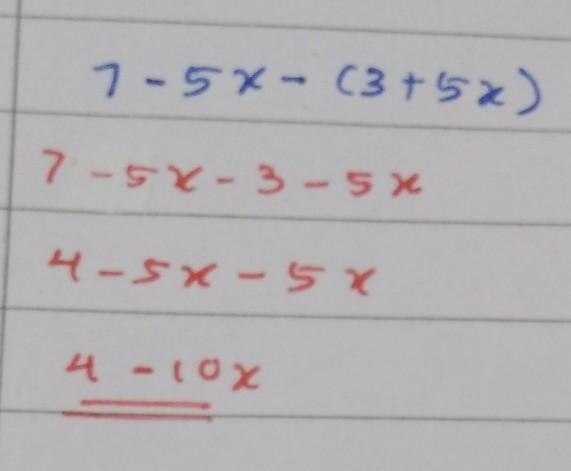 7 - 5x - (3 + 5x)
7 - 5x - 3 - 5x
4 - 5x - 5x
4 - 10x